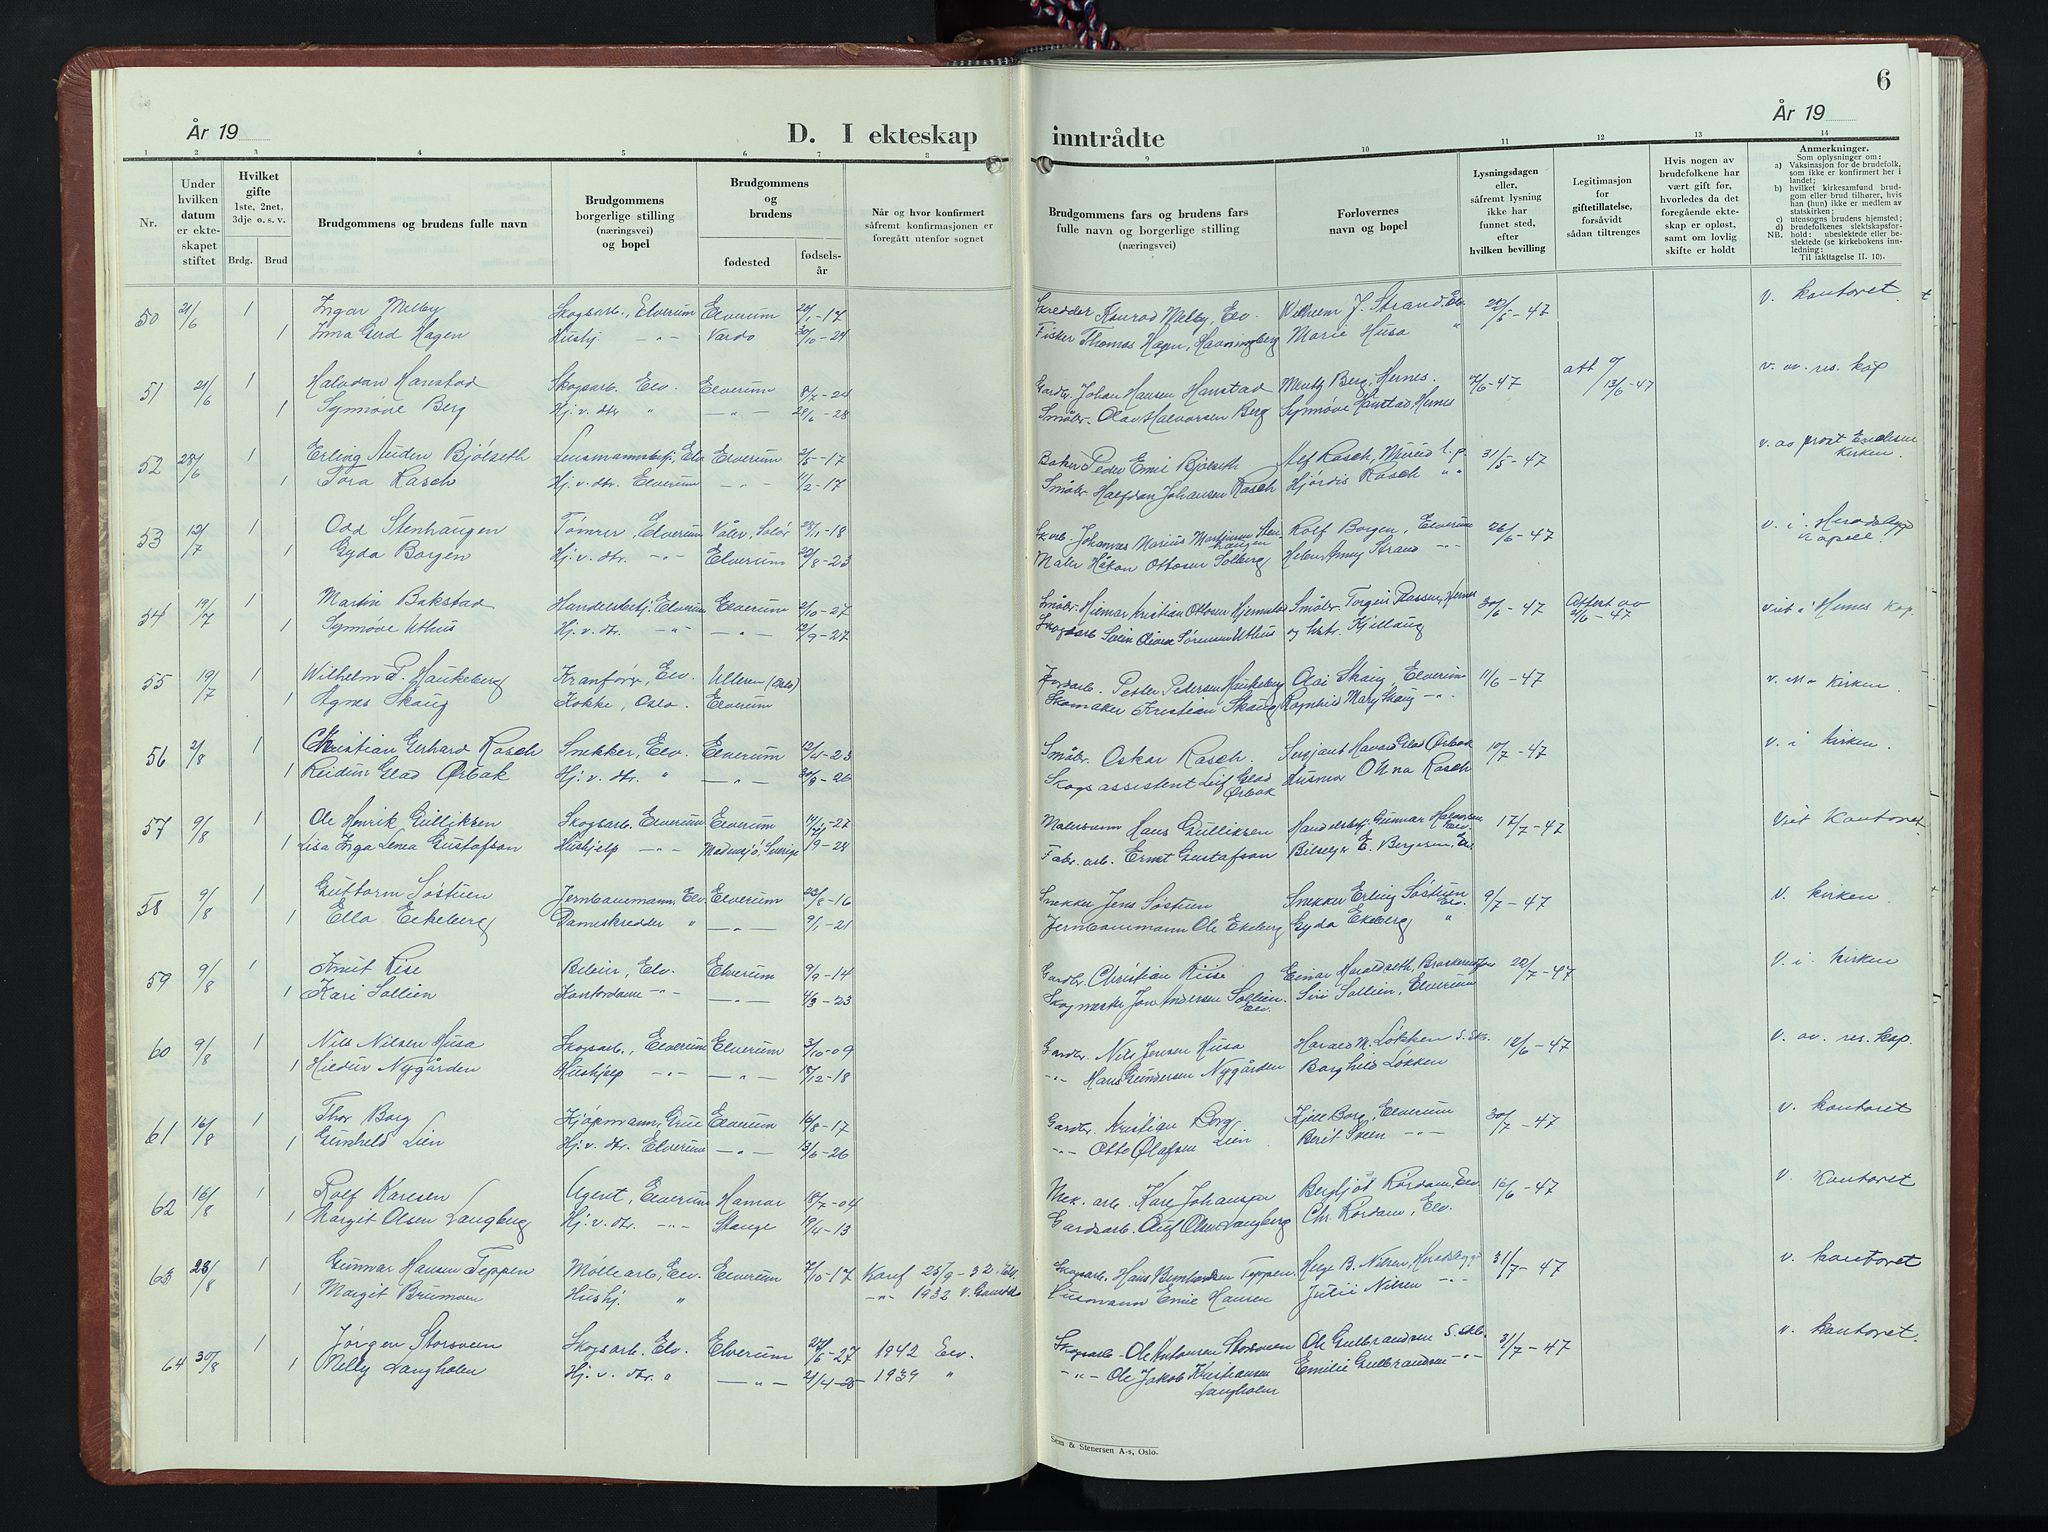 6
År 19
År 19
D. I ekteskap inntrådte
1 2 3 4 5 6 7 8 9 10 11 12 13 14
Nr.
Under hvilken datum er ekteskapet stiftet
Hvilket gifte 1ste, 2net, 3dje o. s. v.
Brdg. Brud
Brudgommens og brudens fulle navn
Brudgommens borgerlige stilling (næringsvei) og bopel
Brudgommens og brudens
fødested
fødselsår
Når og hvor konfirmert såfremt konfirmasjonen er foregått utenfor sognet
Brudgommens fars og brudens fars fulle navn og borgerlige stilling (næringsvei)
Forlovernes navn og bopel
Lysningsdagen eller, såfremt lysning ikke har funnet sted, efter hvilken bevilling
Legitimasjon for giftetillatelse, forsåvidt sådan tiltrenges
Hvis nogen av brudefolkene har vært gift før, hvorledes da det foregående ekteskap er opløst, samt om lovlig skifte er holdt
Anmerkninger.
Som oplysninger om:
a) Vaksinasjon for de brudefolk, som ikke er konfirmert her i landet;
b) hvilket kirkesamfund brudgom eller brud tilhører, hvis han (hun) ikke er medlem av statskirken;
c) utensogns brudens hjemsted;
d) brudefolkenes slektskapsforhold: ubeslektede eller beslektede (se kirkebokens innledning:
NB.
Til iakttagelse II. 10).
50 21/6 1 Ingar Melby Skogsarb., Elverum Elverum 20/1-17 Skredder Konrad Melby, Elv. Wilhelm J. Strand, Elv. 22/5-47 v. kontoret.
1 Irma Gerd Hagen Hushj. -"- Vardø 30/10-24 Fisker Thomas Hagen, Havningberg Marie Husa "
51 21/6 1 Halvdan Hanstad Skogsarb. Elv. Elverum 8/7-24 Gardbr. Johan Hansen Hanstad Mentz Berg, Hernes. 7/6-47 att 13/6-47 v. av. res. kap
1 Synnøve Berg Hj. v. dtr. " -"- 28/6-28 Småbr. Olav Halvorsen Berg Synnøve Hanstad Hernes
52 28/6 1 Erling Auden Bjølseth Lensmannsbetj., Elv Elverum 2/5-17 Baker Peder Emil Bjølseth Alf Rasch, 31/5-47 v. av prost kirken.
1 Tora Rasch Hj. v. dtr. Elverum -"- 1/2-17 Småbr. Halfdan Johansen Rasch Hjørdis Rasch " "
53 12/7 1 Odd Stenhaugen Tømrer, Elverum Våler, Solør 28/1-18 Skarb. Johannes Marius Martinsen Stenhaugen Rolf Borgen, Elverum 26/6-47 v. i kapell.
1 Gyda Borgen Hj. v. dtr. -"- Elverum 22/8-23 Maler Håkon Ottosen Solberg Helen Anny Strand -"-
54 19/7 1 Martin Bakstad Handelsbetj., Elverum Elverum 2/10-27 Småbr. Hjelmar Kristian Ottosen Småbr. Torgeir Hernes 30/6-47 Attest av 2/6-47 Viet i Hernes Kap
1 Synnøve Uthus Hj. v. dtr. -"- -"- 12/9-27 Skogsarb Svein Oliver Sørensen Uthus og hstr. Kjellaug
55 19/7 1 Wilhelm P. Haukeberg Kranfører, Elv. Ullern (Oslo) Jordarb. Petter Pedersen Haukeberg Olai Skaug, Elverum 11/6-47 v. kirken.
1 Agnes Skaug Kokke, Oslo. Elverum Skomaker Kristian Skaug Ragnhild Mary Skaug -"-
56 2/8 1 Christian Gerhard Rasch Snekker, Elv. Elverum 12/4-23 Småbr. Oskar Rasch. Sersjant Havard Glad Ørbak 10/7-47 v. i kirken.
1 Reidun Glad Ørbak Hj. v. dtr. " -"- 30/9-26 Skogsassistent Leif Glad Ørbak Husmor Rasch
57 9/8 1 Ole Henrik Gulliksen Skogsarb. Elverum Elverum Malersvenn Hans Gulliksen Handelsbetj. Gunnar Elv. 17/7-47 Viet Kontoret
1 Lisa Inga Linea Gustafson Hushjelp -"- Sverige Fabr. arb. Ernst Gustafson E. Bergersen, Elv
58 9/8 1 Guttorm Søstuen Jernbanemann, Elv. Elverum 23/8-16 Snekker Jens Søstuen Snekker Erling Søstuen Elv. 9/7-47 V. kirken.
1 Ella Eikeberg Dameskredder " -"- 9/1-21 Jernbanemann Ole Ekeberg Gyda Ekeberg "
59 9/8 1 Knut Rise Bileier, Elv. Elverum 9/9-14 Gardbr. Christian Riise Einar Haraldseth, 22/7-47 V. i kirken
1 Kari Sollien Kontordame -"- -"- 4/3-23 Skogmester Jon Andersen Sollien. Elv. Siri Sollien, Elverum
60 9/8 1 Nils Nilsen Husa Skogsarb., Elverum Elverum 3/10-09 Gardbr. Nils Jensen Husa Harald M. Løkken S. Sk. 12/6-47 V. av. res. kap.
1 Hildur Nygården Hushjelp -"- -"- 15/12-18 -"- Hans Gundersen Nygården Borghild Løkken
61 16/8 1 Thor Borg Kjøpmann, Grue Elverum 16/8-17 Gardbr. Kristian Borg Kjell Borg, Elverum 30/7-47 v. kontoret
1 Gunhild Lien Hj. v. dtr. Elverum -"- 13/6-26 -"- Otto Olafsen Lien Berit Sveen -"-
62 16/8 1 Rolf Karlsen Agent, Elverum Hamar 18/7-04 Mek. arb. Karl Johansen Bergljot Rørdam, Elv 16/6-47 V. Kontoret
1 Margit Olsen Langberg Hj. v. dtr. -"- Stange 19/4-13 Gardsarb. Oluf Olsen Langberg Chr. Rørdam, Elv.
63 23/8 1 Gunnar Hansen Teppen Møllearb, Elv. Elverum 7/10-17 Konf 25/9-32, Elv. Skogsarb. Hans Bernhardsen Teppen Helge B. Nilsen, 31/7-47 v. kontoret
1 Margit Brumoen Hushj. " -"- 1932 v. Husmann Emil Hansen Julii Nilsen -"-
64 30/8 1 Jørgen Storsveen Skogsarb. Elv. Elverum 24/6-27 1942 Elv. Skogsarb Ole Antonsen Storsveen Ole Gulbrandsen S. Skb. 31/7-47 v. kontoret.
1 Nelly Langholen Hj. v. dtr. " -"- 21/4-25 1939 " -"- Ole Jakob Kristiansen Langholen Emilie Gulbrandsen -"-
Sem & Stenersen A-s, Oslo.